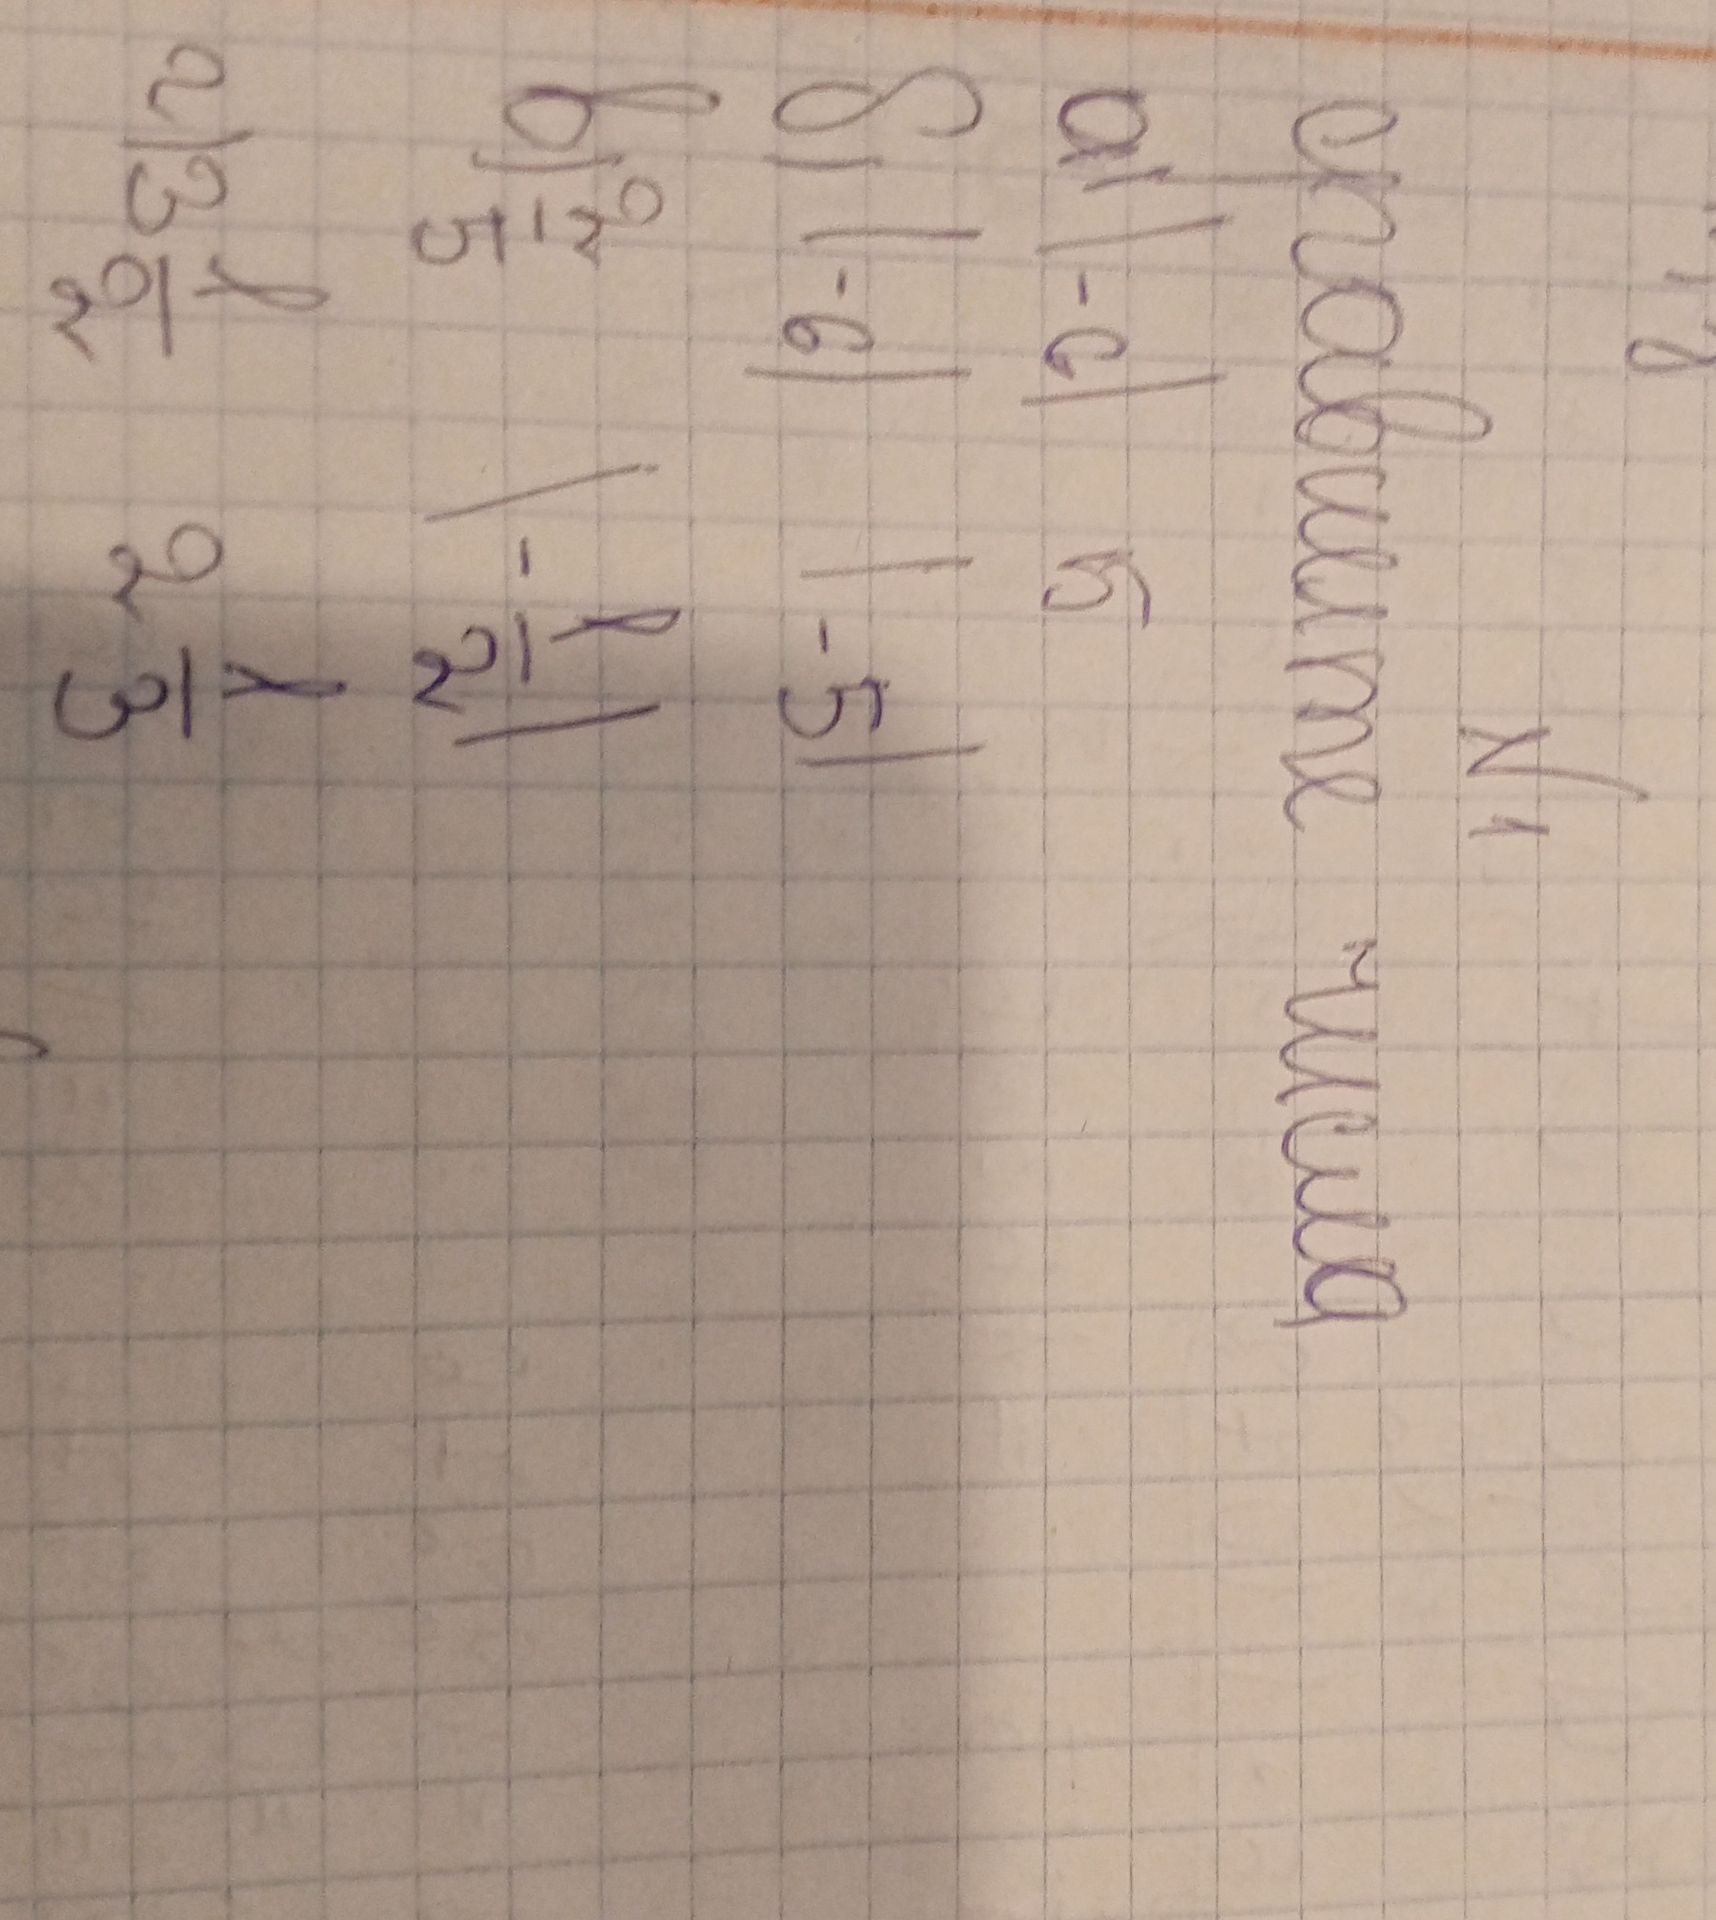 N1
Сравните числа
а) |-6| 5
б) |-6| |-5|
в) 2/5 |-1/2|
г) 3 1/2 2 1/3